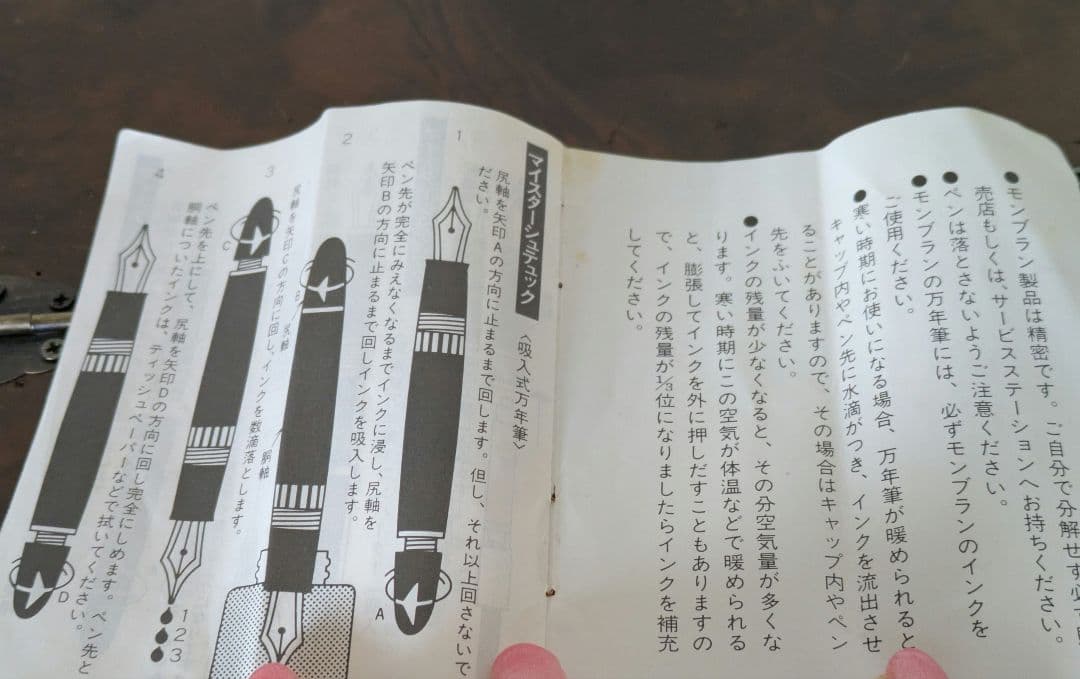 ●モンブラン製品は精密です。ご自分で分解せず必
売店もしくは、サービスステーションへお持ちください。
●ペンは落とさないようご注意ください。
●モンブランの万年筆には、必ずモンブランのインクを
ご使用ください。
●寒い時期にお使いになる場合、万年筆が暖められると
キャップ内やペン先に水滴がつき、インクを流出させ
ることがありますので、その場合はキャップ内やペン
先をふいてください。
●インクの残量が少なくなると、その分空気量が多くな
ります。寒い時期にこの空気が体温などで暖められる
と、膨張してインクを外に押しだすこともありますの
で、インクの残量が⅓位になりましたらインクを補充
してください。
マイスターシュテュック〈吸入式万年筆〉
1
尻軸を矢印Aの方向に止まるまで回します。但し、それ以上回さないで
ださい。
A
2
ペン先が完全にみえなくなるまでインクに浸し、尻軸を
矢印Bの方向に止まるまで回しインクを吸入します。
B
尻軸
胴軸
3
尻軸を矢印Cの方向に回し、インクを数滴落とします。
C
1
2
3
4
ペン先を上にして、尻軸を矢印Dの方向に回し完全にしめます。ペン先と
胴軸についたインクは、ティッシュペーパーなどで拭いてください。
D